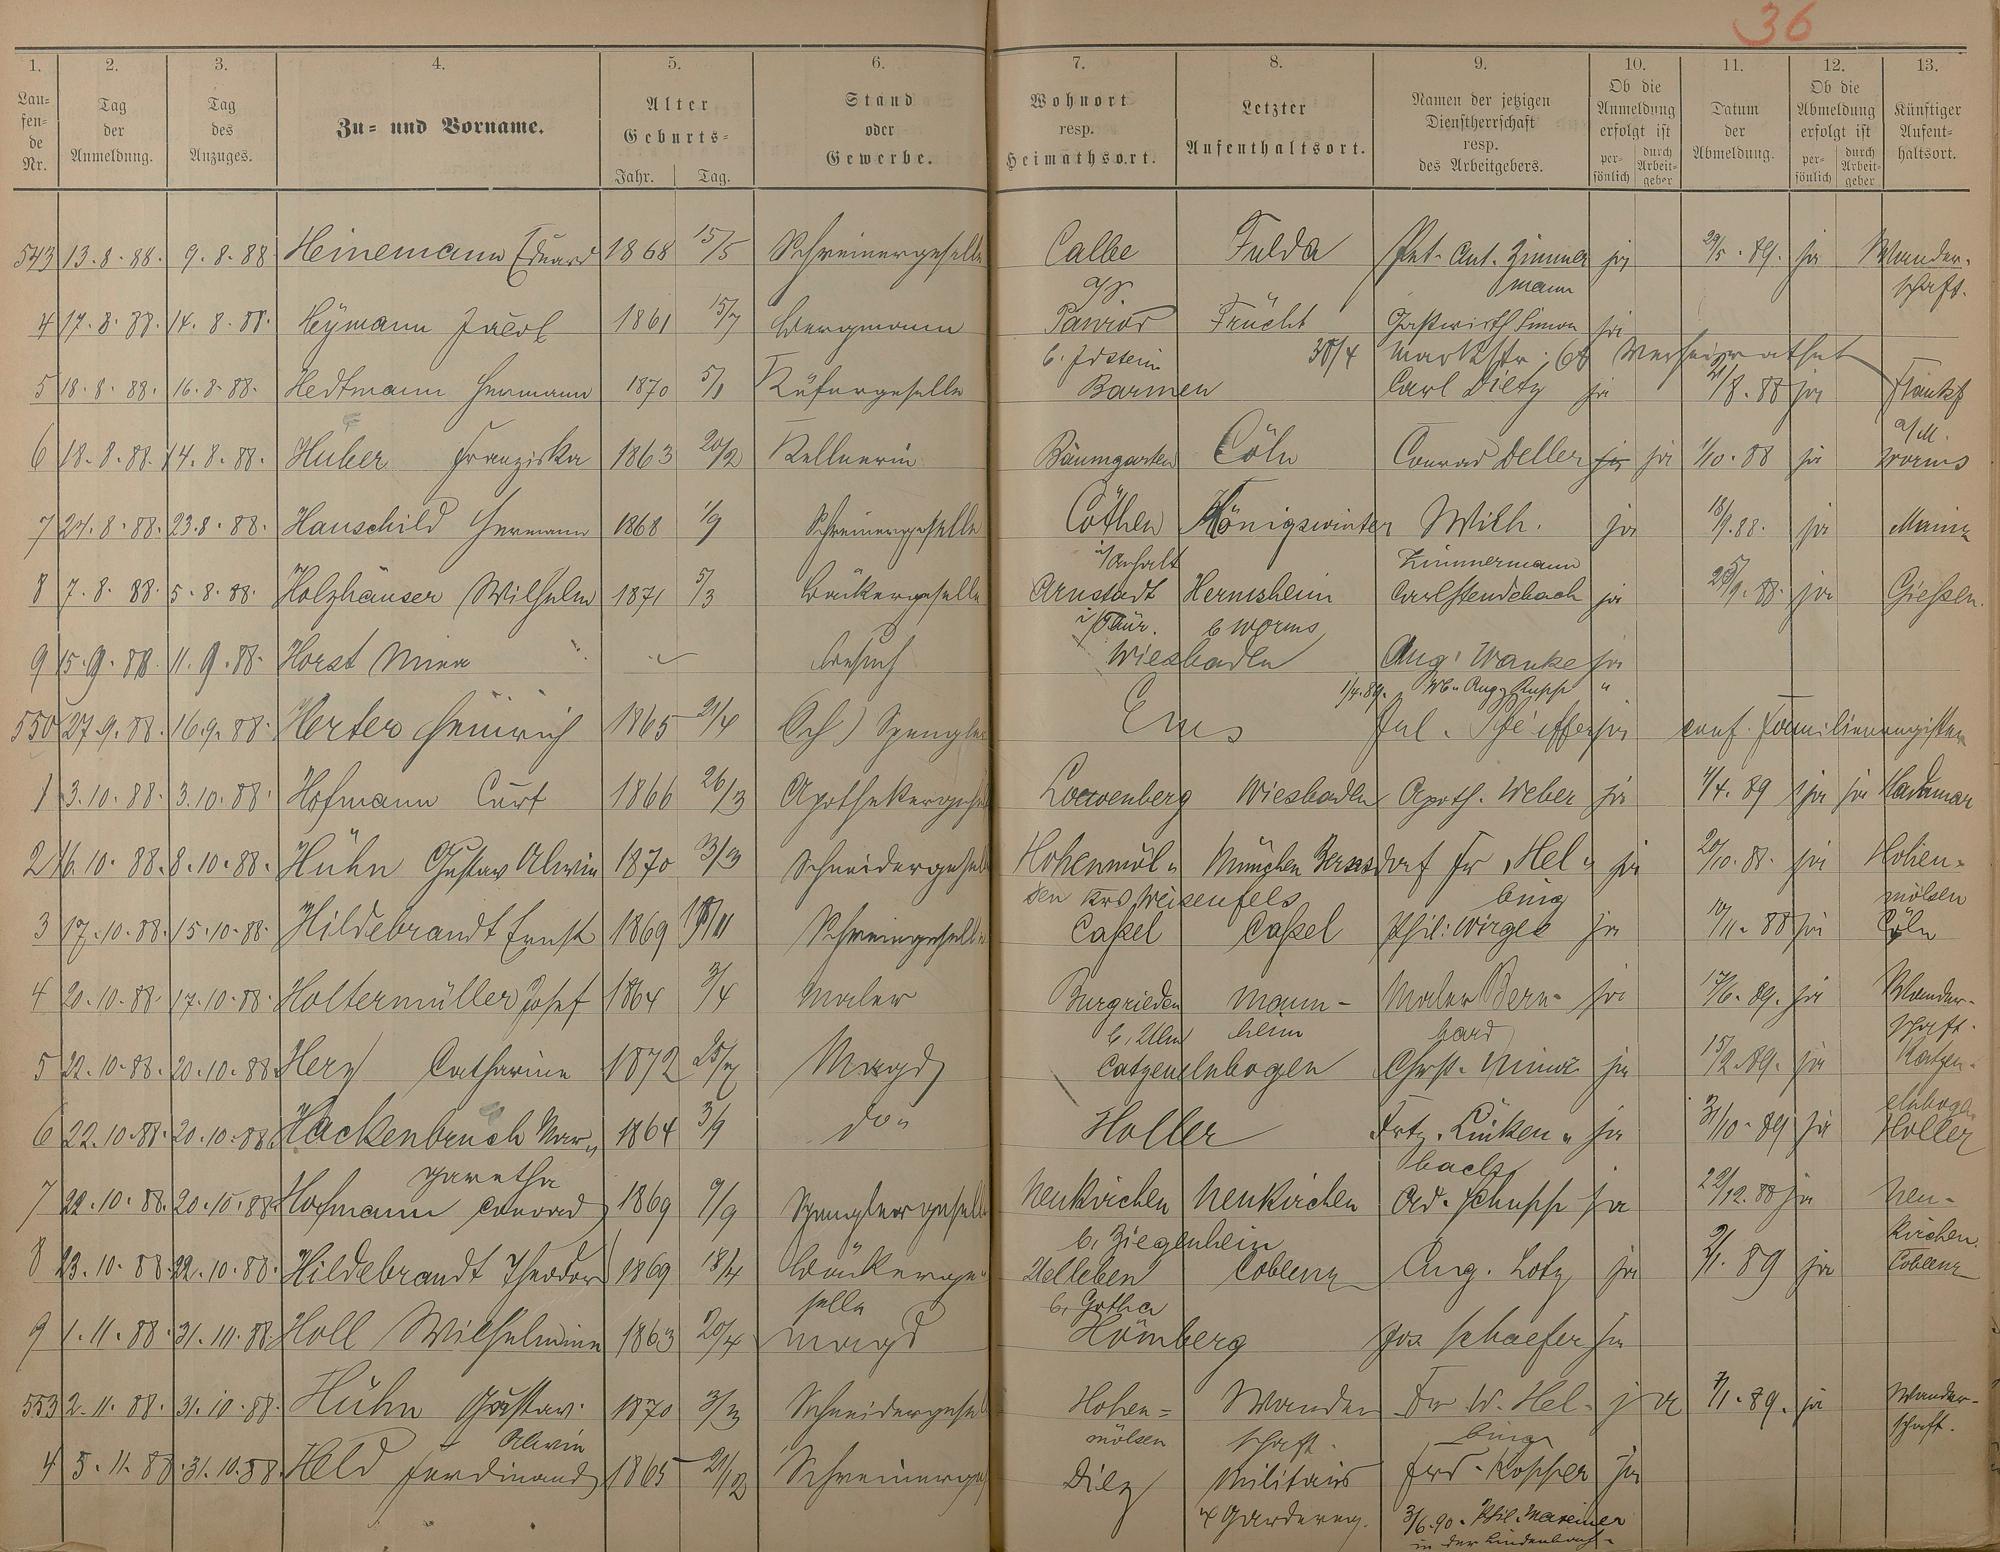 36
1. 2. 3. 4. 5. 6. 7. 8. 9. 10. 11. 12. 13.
Lau- fen- de Nr.
Tag der Anmeldung.
Tag des Anzuges.
Zu- und Vorname.
Alter
Geburts-
Jahr. Tag.
Stand oder Gewerbe.
Wohnort resp. Heimathsort.
Letzter Aufenthaltsort.
Namen der jetzigen Dienstherrschaft resp. des Arbeitgebers.
Ob die Anmeldung erfolgt ist
per- sönlich durch Arbeit- geber
Datum der Abmeldung.
Ob die Abmeldung erfolgt ist
per- sönlich durch Arbeit- geber
Künftiger Aufent- haltsort.
543 13.8.88. 9.8.88 Heinemann Eduard 1868 15/5 Schreinergeselle Calbe Fulda Ant. Zimmer ja 29/5.89. ja Wander-
mann schaft.
4 17.8.88. 14.8.88. Heymann Jacob 1861 15/7 Bergmann Panrod Frücht Gastwirth Simon ja
b. Idstein 30/4 Marktstr. verheirathet
5 18.8.88. 16.8.88. Hedtmann Hermann 1870 5/1 Küfergeselle Barmen Carl Dietz ja 21/8.88 ja Frankf
a/M.
6 18.8.88. 14.8.88. Huber Franziska 1863 20/2 Kellnerin Baumgarten Cöln Conrad Deller ja ja 1/10.88 ja Worms
7 24.8.88. 23.8.88. Hauschild Hermann 1868 1/9 Schreinergeselle Cöthen Königswinter Wilh. ja 18/9.88. ja Mainz
i/Anhalt Zimmermann
8 7.8.88. 5.8.88. Holzhäuser Wilhelm 1871 5/3 Bäckergeselle Arnstadt Hernsheim Carl Stendebach ja /9.88. ja Gießen.
i/Thür. b Worms
9 15.9.88. 11.9.88. Horst Mina Besuch Wiesbaden Aug. Wanke ja
1/4.89. Wb. Aug. Rupp "
550 27.9.88. 16.9.88. Herter Heinrich 1865 21/4 Spengler Ems Jul. Pfeiffer ja conf. Familienregister
1 3.10.88. 3.10.88. Hofmann Curt 1866 26/3 Apothekergehül Loewenberg Wiesbaden Apoth. Weber ja 1/4.89 ja ja Hadamar
2 16.10.88. 8.10.88. Hühn Gustav Alwin 1870 3/3 Schneidergesell Hohenmöl- München Bernsdorf Fr. Hel- ja 20/10.88. ja Hohen-
sen Krs Weisenfels bing mölsen
3 17.10.88. 15.10.88. Hildebrandt Ernst 1869 /11 Schreingeselle Caßel Caßel Phil. Wirges ja /11.88 ja Cöln
4 20.10.88. 17.10.88. Holtermüller Josef 1864 3/4 Maler Burgrieden Mann- Maler Bern- ja 17/6.89. ja Wander-
b. Ulm heim hard schaft.
5 22.10.88. 20.10.88. Herz Catharine 1872 25/7 Magd Catzenelnbogen Chrst. ja 15/2.89. ja Katzen-
elnbogen
6 22.10.88. 20.10.88. Hackenbruch Mar- 1864 3/9 do Holler Frtz. Linken- ja 31/10.89 ja Holler
garetha bach
7 22.10.88. 20.10.88. Hofmann Conrad 1869 9/9 Spenglergeselle Neukirchen Neukirchen Ad. Schupp ja 22/12.88 ja Neu-
b. Ziegenhein kirchen.
8 23.10.88. 22.10.88. Hildebrandt Theodor 1869 18/4 Bäckerge- Uelleben Coblenz Aug. Lotz ja 2/1.89 ja Coblenz
selle b. Gotha
9 1.11.88. 31.10.88. Holl Wilhelmine 1863 20/4 Magd Hömberg Jos Schaefer ja
553 2.11.88. 31.10.88. Hühn Gustav 1870 3/3 Schneidergesel Hohen- Wander Fr W. Hel- ja 7/1.89. ja Wander-
Alwin mölsen schaft. bing schaft.
4 5.11.88. 31.10.88. Held Ferdinand 1865 21/12 Schreinerges Diez Militair Frd. Kopper ja
3/6.90. Phil. in der Lindenbach